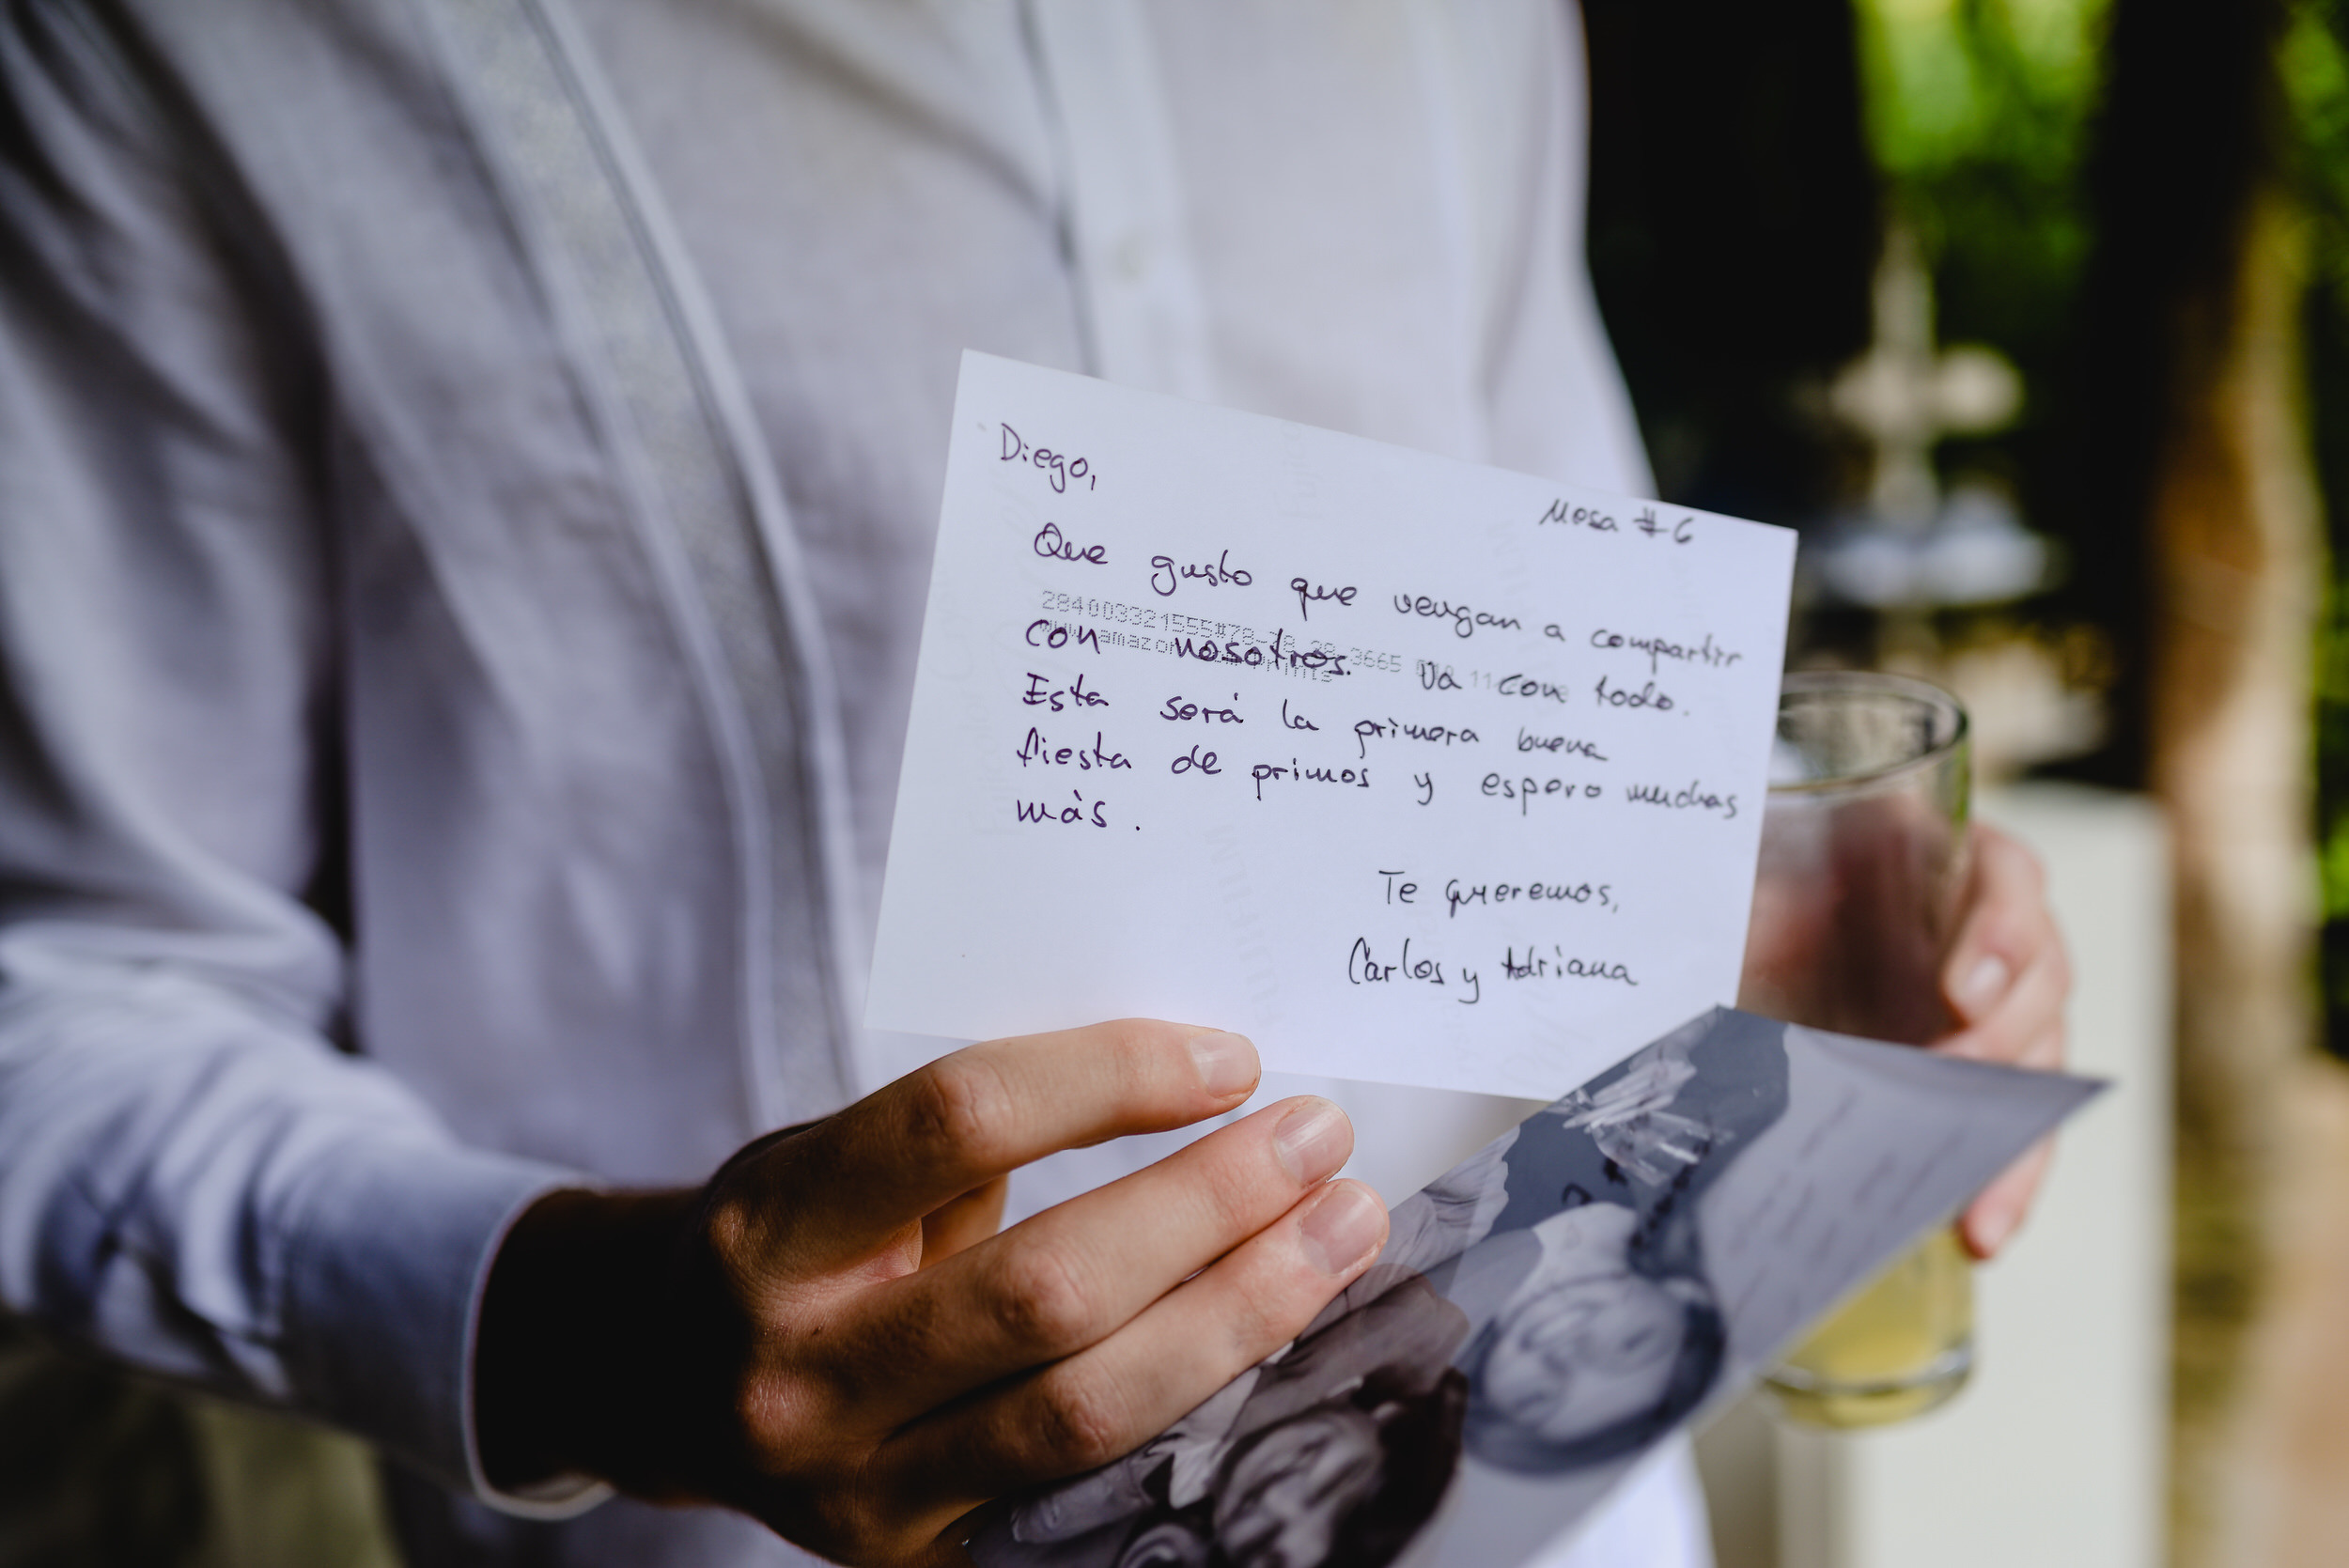 Diego,
Mesa #6
Que gusto que vengan a compartir
con nosotros. Va con todo.
Esta será la primera buena
fiesta de primos y espero muchas
màs.
Te queremos,
Carlos y Adriana
284003321555#78-28-28-3665
www.amazon prints